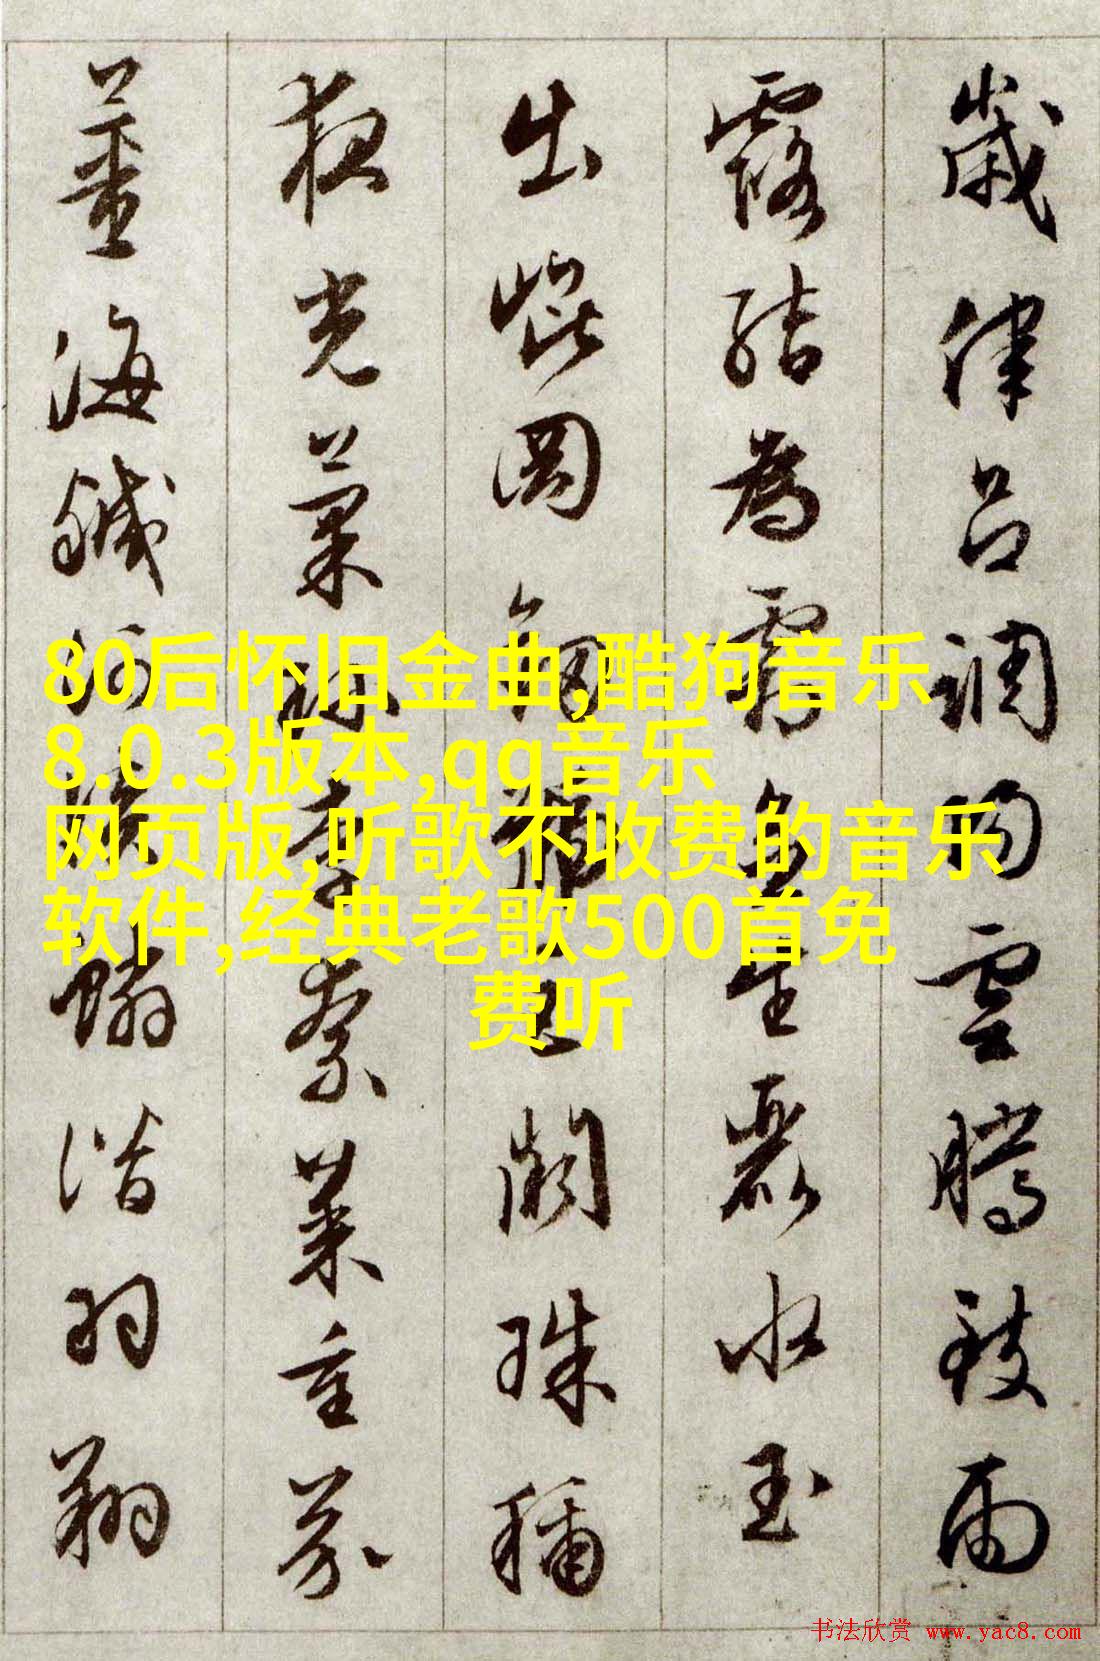 歲律呂調陽雲騰致雨
露結為霜金生麗水玉
出崐岡劒號巨闕珠稱
夜光菓珎李柰菜重芥
薑海鹹河淡鱗潛羽翔
80后怀旧金曲,酷狗音乐
8.0.3版本,qq音乐
网页版,听歌不收费的音乐
软件,经典老歌500首免
费听
书法欣赏 www.yac8.com